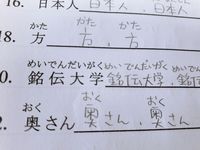 16. 日本人 日本人、日本人
かた かた
18. 方 方、方
めいでんだいがく めいでんだいがく
0. 銘伝大学 銘伝大学、銘伝
おく おく
2. 奥さん 奥さん、奥さん